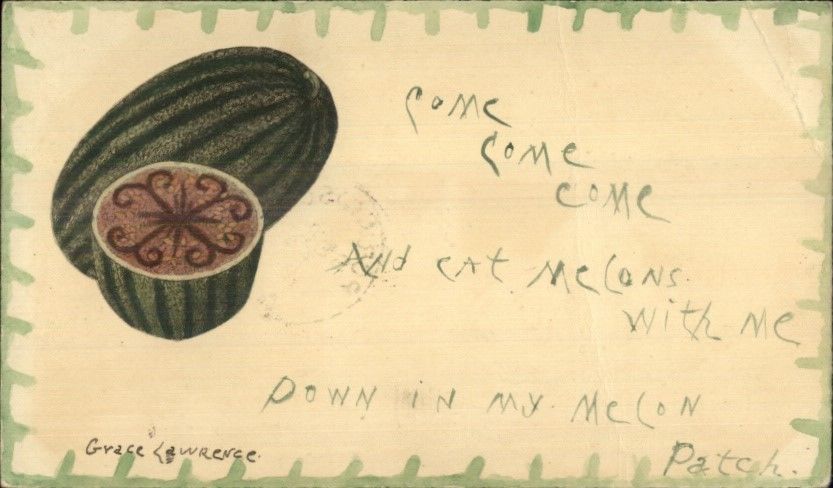 Come
Come
Come
And eat Melons.
With Me
Down in My Melon
Patch.
Grace Lawrence.